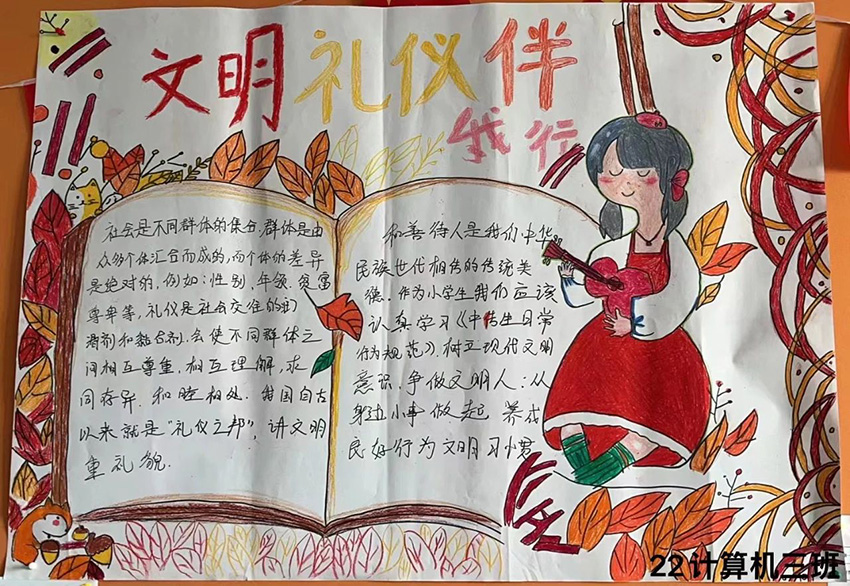 文明礼仪伴
我行
社会是不同群体的集合,群体是由
众多个体汇合而成的,而个体的差异
是绝对的,例如:性别,年龄,贫富
尊卑等,礼仪是社会交往的润
滑剂和黏合剂,会使不同群体之
间相互尊重,相互理解,求
同存异,和睦相处,我国自古
以来就是"礼仪之邦",讲文明
重礼貌.
和善待人是我们中华
民族世代相传的传统美
德,作为小学生我们应该
认真学习《中学生日常
行为规范》,树立现代文明
意识,争做文明人:从
身边小事做起 养成
良好行为文明习惯
22计算机三班